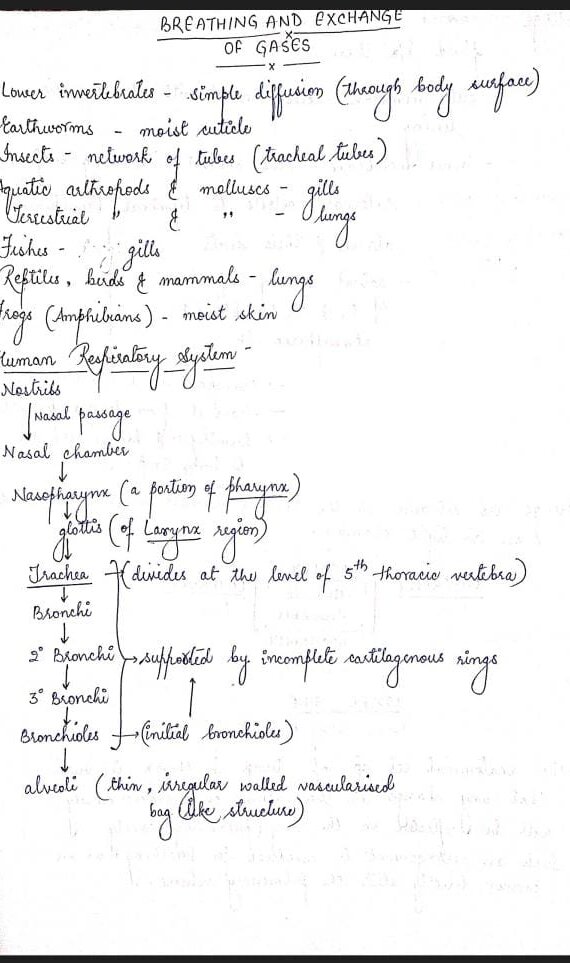 BREATHING AND EXCHANGE
OF GASES
Lower invertebrates - simple diffusion (through body surface)
Earthworms - moist cuticle
Insects - network of tubes (tracheal tubes)
Aquatic arthropods & molluscs - gills
Terrestrial " & " - lungs
Fishes - gills
Reptiles, birds & mammals - lungs
Frogs (Amphibians) - moist skin
Human Respiratory System -
Nostrils
↓ Nasal passage
Nasal chamber
↓
Nasopharynx (a portion of pharynx)
↓
glottis (of Larynx region)
↓
Trachea → (divides at the level of 5th thoracic vertebra)
↓
Bronchi
↓
2° Bronchi → supported by incomplete cartilagenous rings
↓
3° Bronchi
↓
Bronchioles → (initial bronchioles)
↓
alveoli (thin, irregular walled vascularised
bag like structure)